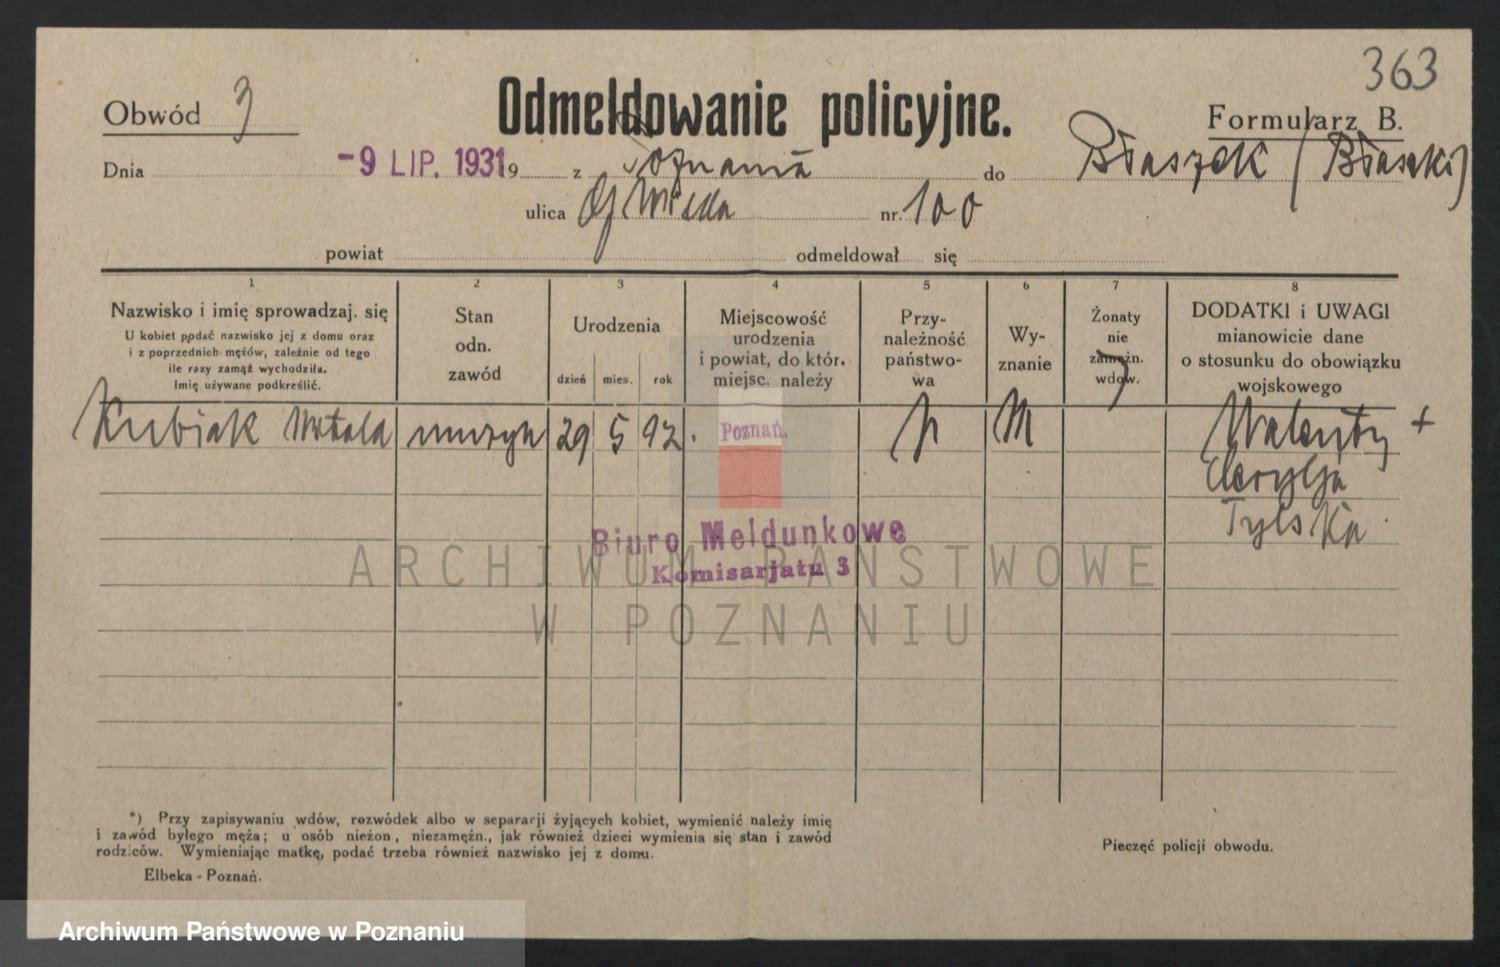 363
Obwód 3
Odmeldowanie policyjne.
Formularz B.
Dnia -9 LIP. 1931 9 z Poznania do Błaszek (Błaszki)
ulica nr. 100
powiat odmeldował się
1 2 3 4 5 6 7 8
Nazwisko i imię sprowadzaj. się
U kobiet podać nazwisko jej z domu oraz
i z poprzednich mężów, zależnie od tego
ile razy zamąż wychodziła.
Imię używane podkreślić.
Stan
odn.
zawód
Urodzenia
dzień mies. rok
Miejscowość
urodzenia
i powiat, do któr.
miejsc. należy
Przy-
należność
państwo-
wa
Wy-
znanie
Żonaty
nie
zamężn.
wdow.
DODATKI i UWAGI
mianowicie dane
o stosunku do obowiązku
wojskowego
Kubiak muzyk 29 5 92 Poznań. Walenty +
Tylska
Biuro Meldunkowe
Komisarjatu 3
ARCHIWUM PAŃSTWOWE
W POZNANIU
*) Przy zapisywaniu wdów, rozwódek albo w separacji żyjących kobiet, wymienić należy imię
i zawód byłego męża; u osób nieżon, niezamężn., jak również dzieci wymienia się stan i zawód
rodziców. Wymieniając matkę, podać trzeba również nazwisko jej z domu.
Elbeka - Poznań.
Pieczęć policji obwodu.
Archiwum Państwowe w Poznaniu